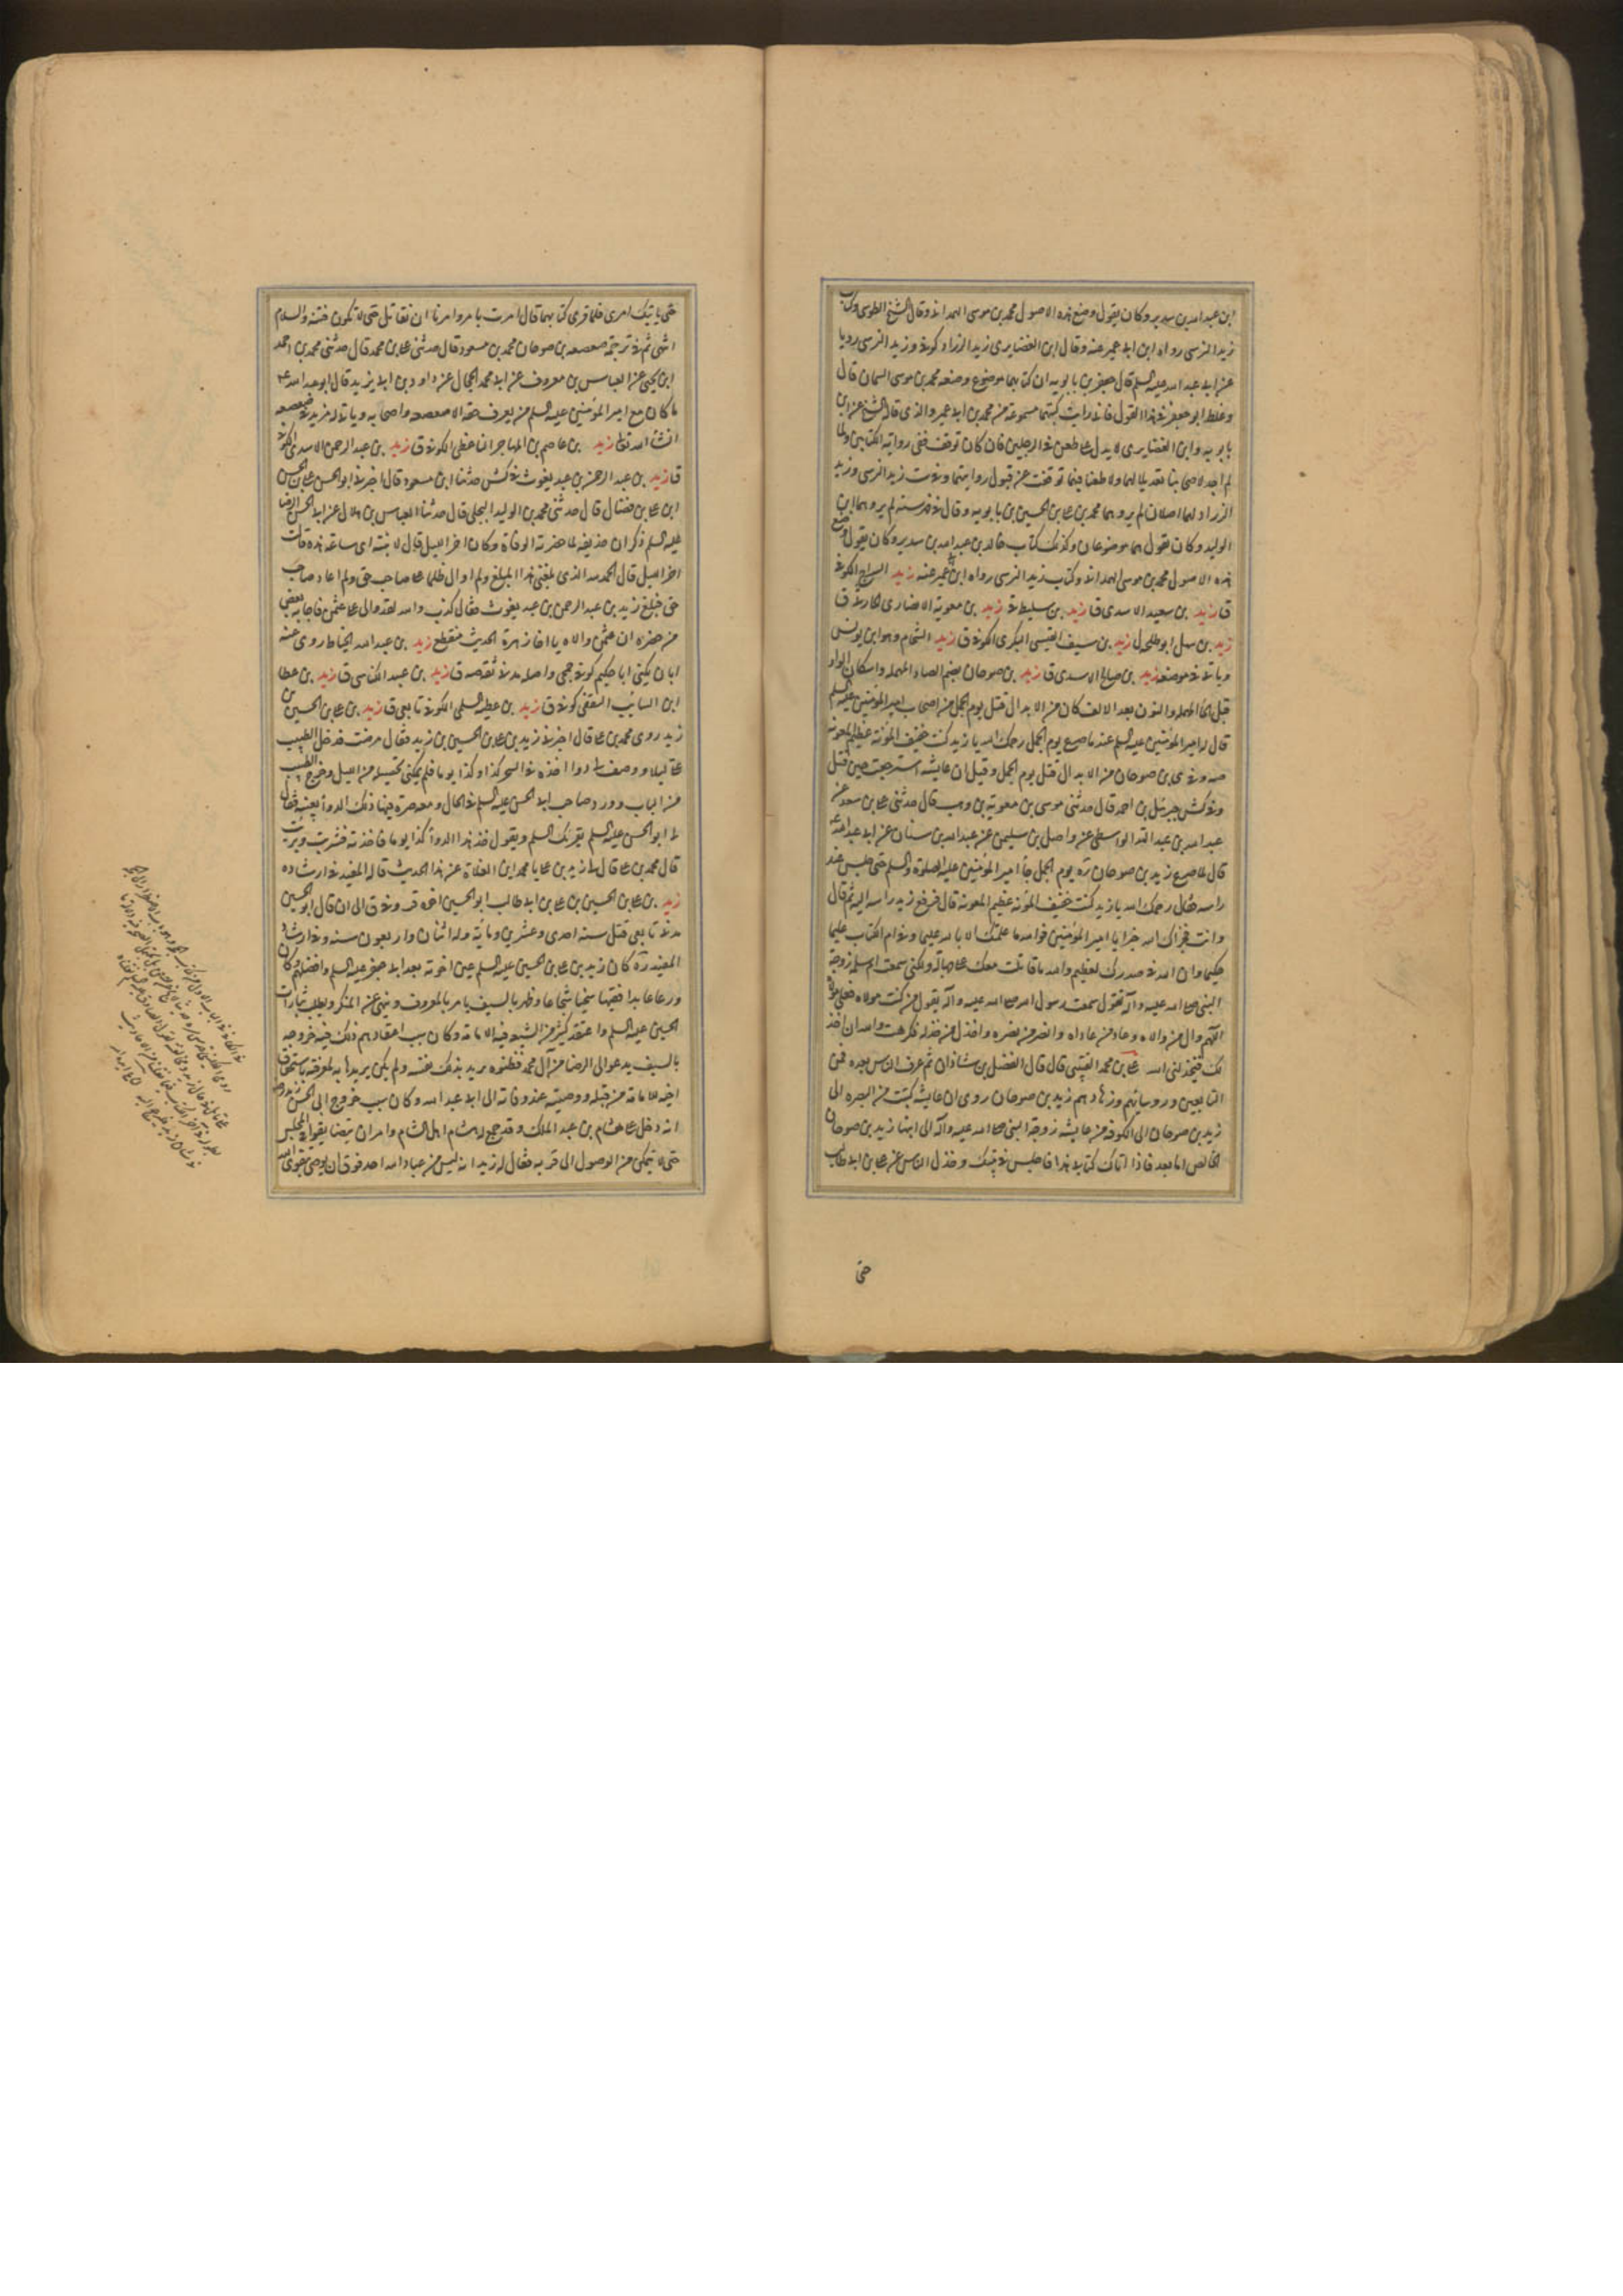 ابن عبد الله بن سدير وكان يقول وضع هذه الاصول محمد بن موسى الهمداني وقال الشيخ الطوسي وكتاب
زيد النرسي رواه ابن ابي عمير عنه وقال ابن الغضايري زيد الزراد كوفي وزيد النرسي رويا
عن ابي عبد الله عليه السلم قال ابو جعفر بن بابويه ان كتابهما موضوع وضعه محمد بن موسى السمان قال
وغلط ابو جعفر في هذا القول فاني رايت كتبهما مسموعة من محمد بن ابي عمير والذي قاله الشيخ عن ابن
بابويه وابن الغضايري لا يدل على طعن في الرجلين فان كان توقف ففي رواية الكتابين ولما
لم اجد لاصحابنا تعديلا لهما ولا طعنا فيهما توقفت عن قبول روايتهما وفي ست زيد النرسي وزيد
الزراد لهما اصلان لم يروهما محمد بن علي بن الحسين بن بابويه وقال في فهرسته لم يروهما ابن
الوليد وكان يقول هما موضوعان وكذلك كتاب خالد بن عبد الله بن سدير وكان يقول وضع
هذه الاصول محمد بن موسى الهمداني وكتاب زيد النرسي رواه ابن ابي عمير عنه زيد السراج الكوفي
ق زيد بن سعيد الاسدي ق زيد بن سليط زيد بن معوية الانصاري ق
زيد بن سهل ابو طلحة ل زيد بن سيف القيسي البكري الكوفي ق زيد الشحام وهو ابن يونس
وياتي في موضعه زيد بن صالح الاسدي ق زيد بن صوحان بضم الصاد المهملة واسكان الواو
قبل الحا المهملة والنون بعد الالف كان من الابدال قتل يوم الجمل من اصحاب امير المؤمنين عليه السلم
قال له امير المؤمنين عليه السلم عند ما صرع يوم الجمل رحمك الله يا زيد كنت خفيف المؤنة عظيم المعونة
صه وفي ي بن صوحان من الابدال قتل يوم الجمل وقيل ان عايشة استرجعت حين قتل
وفي كش جبرئيل بن احمد قال حدثني موسى بن معوية بن وهب قال حدثني علي بن سعد عن
عبد الله بن عبد الله الواسطي عن واصل بن سليمن عن عبد الله بن سنان عن ابي عبد الله
قال لما صرع زيد بن صوحان ره يوم الجمل جا امير المؤمنين عليه الصلوة والسلم حتى جلس عند
راسه فقال رحمك الله يا زيد كنت خفيف المؤنة عظيم المعونة قال فرفع زيد راسه اليه ثم قال
وانت فجزاك الله خيرا يا امير المؤمنين فوالله ما علمتك الا بالله عليما وفي ام الكتاب عليا
حكيما وان الله في صدرك لعظيم والله ما قاتلت معك على جهالة ولكني سمعت ام سلمة زوجة
النبي صلى الله عليه وآله تقول سمعت رسول الله صلى الله عليه وآله يقول من كنت مولاه فعلي مولاه
اللهم وال من والاه وعاد من عاداه وانصر من نصره واخذل من خذله فكرهت والله ان اخذ
لك فيخذلني الله علي بن محمد القتيبي قال قال الفضل بن شاذان ثم عرف الناس بعده فمن
التابعين ورؤسائهم وزهادهم زيد بن صوحان روي ان عايشة كتبت من البصرة الى
زيد بن صوحان الى الكوفة من عايشة زوجة النبي صلى الله عليه وآله الى ابنها زيد بن صوحان
الخالص اما بعد فاذا اتاك كتابي هذا فاجلس في بيتك وخذل الناس عن علي بن ابي طالب
حتى
حتى ياتيك امري فلما قرئ كتابها قال امرت بامر وامرنا ان نقاتل حتى لا تكون فتنة والسلام
انتهى ثم في ترجمة صعصعة بن صوحان محمد بن مسعود قال حدثني علي بن محمد قال حدثني محمد بن احمد
ابن يحيى عن العباس بن معروف عن ابي محمد الحجال عن داود بن ابي يزيد قال ابو عبد الله ع
ما كان مع امير المؤمنين عليه السلم من يعرف حقه الا صعصعة واصحابه وياتي له مزيد في صعصعة
انشا الله تعالى زيد بن عاصم بن المهاجر الكوفي ق زيد بن عبد الرحمن الاسدي الكوفي
ق زيد بن عبد الرحمن بن عبد يغوث في كش حدثنا ابن مسعود قال اخبرني ابو الحسن علي بن الحسن
ابن علي بن فضال قال حدثني محمد بن الوليد البجلي قال حدثنا العباس بن هلال عن ابي الحسن الرضا
عليه السلم ذكر ان حذيفة لما حضرته الوفاة وكان اخر الليل قال لابنته اي ساعة هذه قالت
اخر الليل قال الحمد لله الذي بلغني هذا المبلغ ولم اوال ظالما على صاحب حق ولم اعاد صاحب
حق فبلغ زيد بن عبد الرحمن بن عبد يغوث فقال كذب والله لقد والى على عثمن فاجابه بعض
من حضره ان عثمن والاه يا اخا زهرة الحديث منقطع زيد بن عبد الله الخياط روى عنه
ابان يكنى ابا حكيم كوفي جمحي واصله مدني ثقة صه ق زيد بن عبيد الكناسي ق زيد بن عطا
ابن السايب الثقفي كوفي ق زيد بن عطية السلمي الكوفي تابعي ق زيد بن علي بن الحسين بن
زيد روى محمد بن علي قال اخبرني زيد بن علي بن الحسين بن زيد فقال مرضت فدخل الطبيب
علي ليلا ووصف لي دواء اخذه في السحر كذا وكذا يوما فلم يمكني تحصيله من الليل وخرج الطبيب
من الباب وورد صاحب ابي الحسن عليه السلم في الحال ومعه صرة فيها ذلك الدوأ بعينه فقال
لي ابو الحسن عليه السلم يقرئك السلم ويقول خذ هذا الدوأ كذا يوما فاخذته فشربت وبرئت
قال محمد بن علي قال لي زيد بن علي يا محمد اين الغلاة عن هذا الحديث قاله المفيد في ارشاده
زيد بن علي بن الحسين بن علي بن ابي طالب ابو الحسين اخوه قر وفي ق الى ان قال ابو الحسين
مدني تابعي قتل سنة احدى وعشرين ومأية وله اثنان واربعون سنة وفي ارشاد
المفيد ره كان زيد بن علي بن الحسين عليه السلم عين اخوته بعد ابي جعفر عليه السلم وافضلهم وكان
ورعا عابدا فقيها سخيا شجاعا وظهر بالسيف يامر بالمعروف وينهى عن المنكر ويطلب بثارات
الحسين عليه السلم واعتقد كثير من الشيعة فيه الامامة وكان سبب اعتقادهم ذلك فيه خروجه
بالسيف يدعو الى الرضا من آل محمد فظنوه يريد بذلك نفسه ولم يكن يريدها به لمعرفته باستحقاق
اخيه للامامة من قبله ووصيته عند وفاته الى ابي عبد الله وكان سبب خروج ابي الحسين زيد رضه
انه دخل على هشام بن عبد الملك وقد جمع له هشام اهل الشام وامر ان يتضايقوا في المجلس
حتى لا يتمكن من الوصول الى قربه فقال له زيد انه ليس من عباد الله احد فوق ان يوصى بتقوى الله